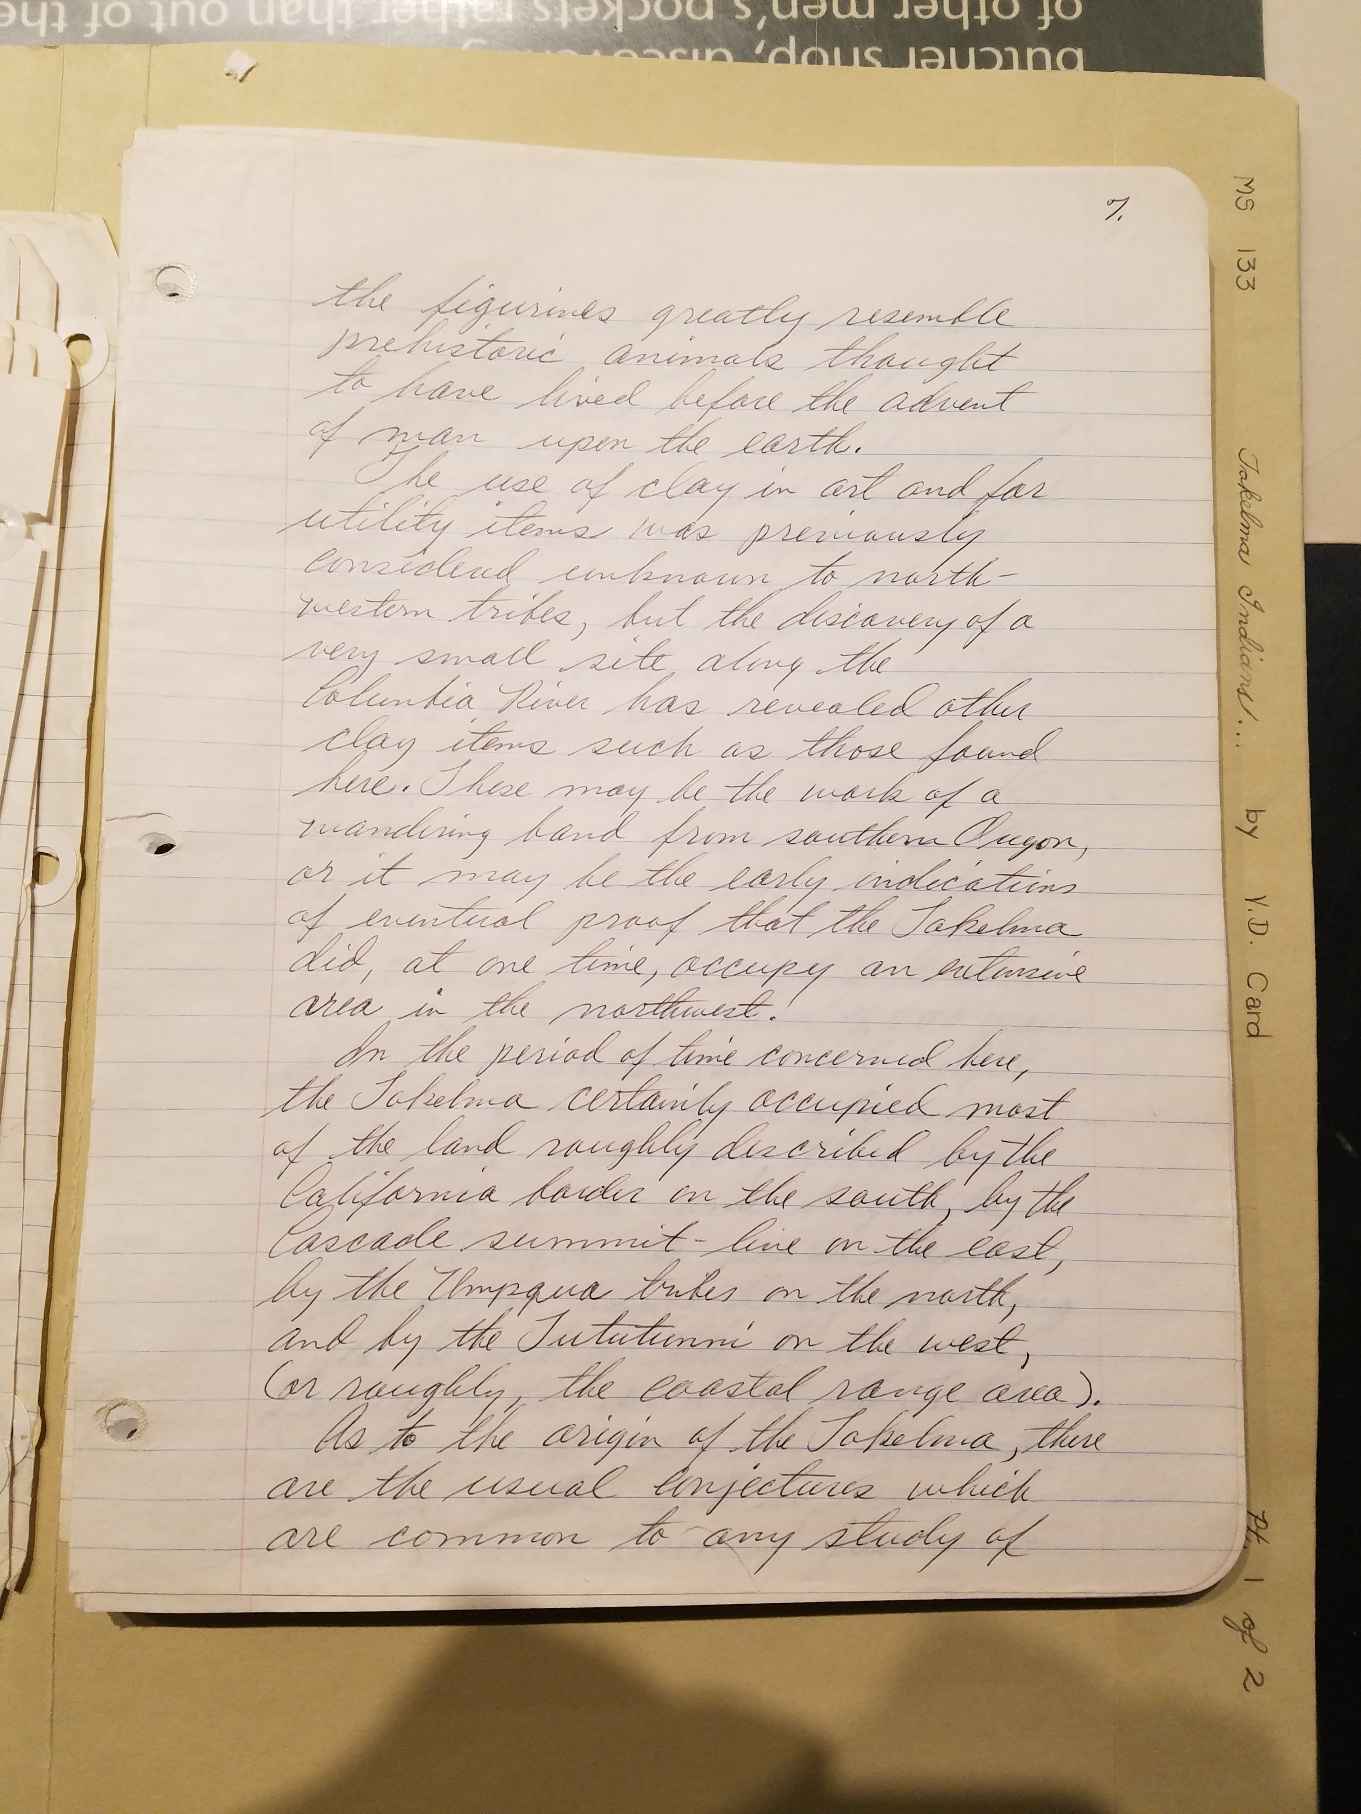 of other men's pockets rather than out of the
butcher shop, discover
7.
the figurines greatly resemble
prehistoric animals thought
to have lived before the advent
of man upon the earth.
The use of clay in art and for
utility items was previously
considered unknown to north-
western tribes, but the discovery of a
very small site along the
Columbia River has revealed other
clay items such as those found
here. These may be the work of a
wandering band from southern Oregon,
or it may be the early indications
of eventual proof that the Takelma
did, at one time, occupy an extensive
area in the northwest.
In the period of time concerned here,
the Takelma certainly occupied most
of the land roughly described by the
California border on the south, by the
Cascade summit-line on the east,
by the Umpqua tribes on the north,
and by the Tututunni on the west,
(or roughly, the coastal range area).
As to the origin of the Takelma, there
are the usual conjectures which
are common to any study of
MS 133 Takelma Indians... by Y.D. Card Pt. 1 of 2